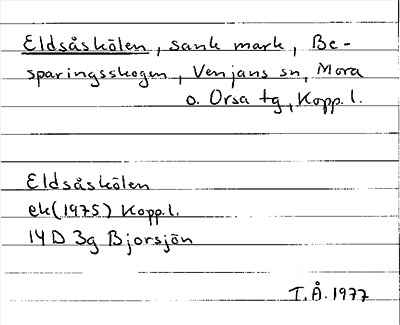 Eldsåskölen, sank mark, Be-
sparingsskogen, Venjans sn, Mora
o. Orsa tg, Kopp.l.
Eldsåskölen
ek(1975) Kopp.l.
14D 3g Bjorsjön
T.Å. 1977